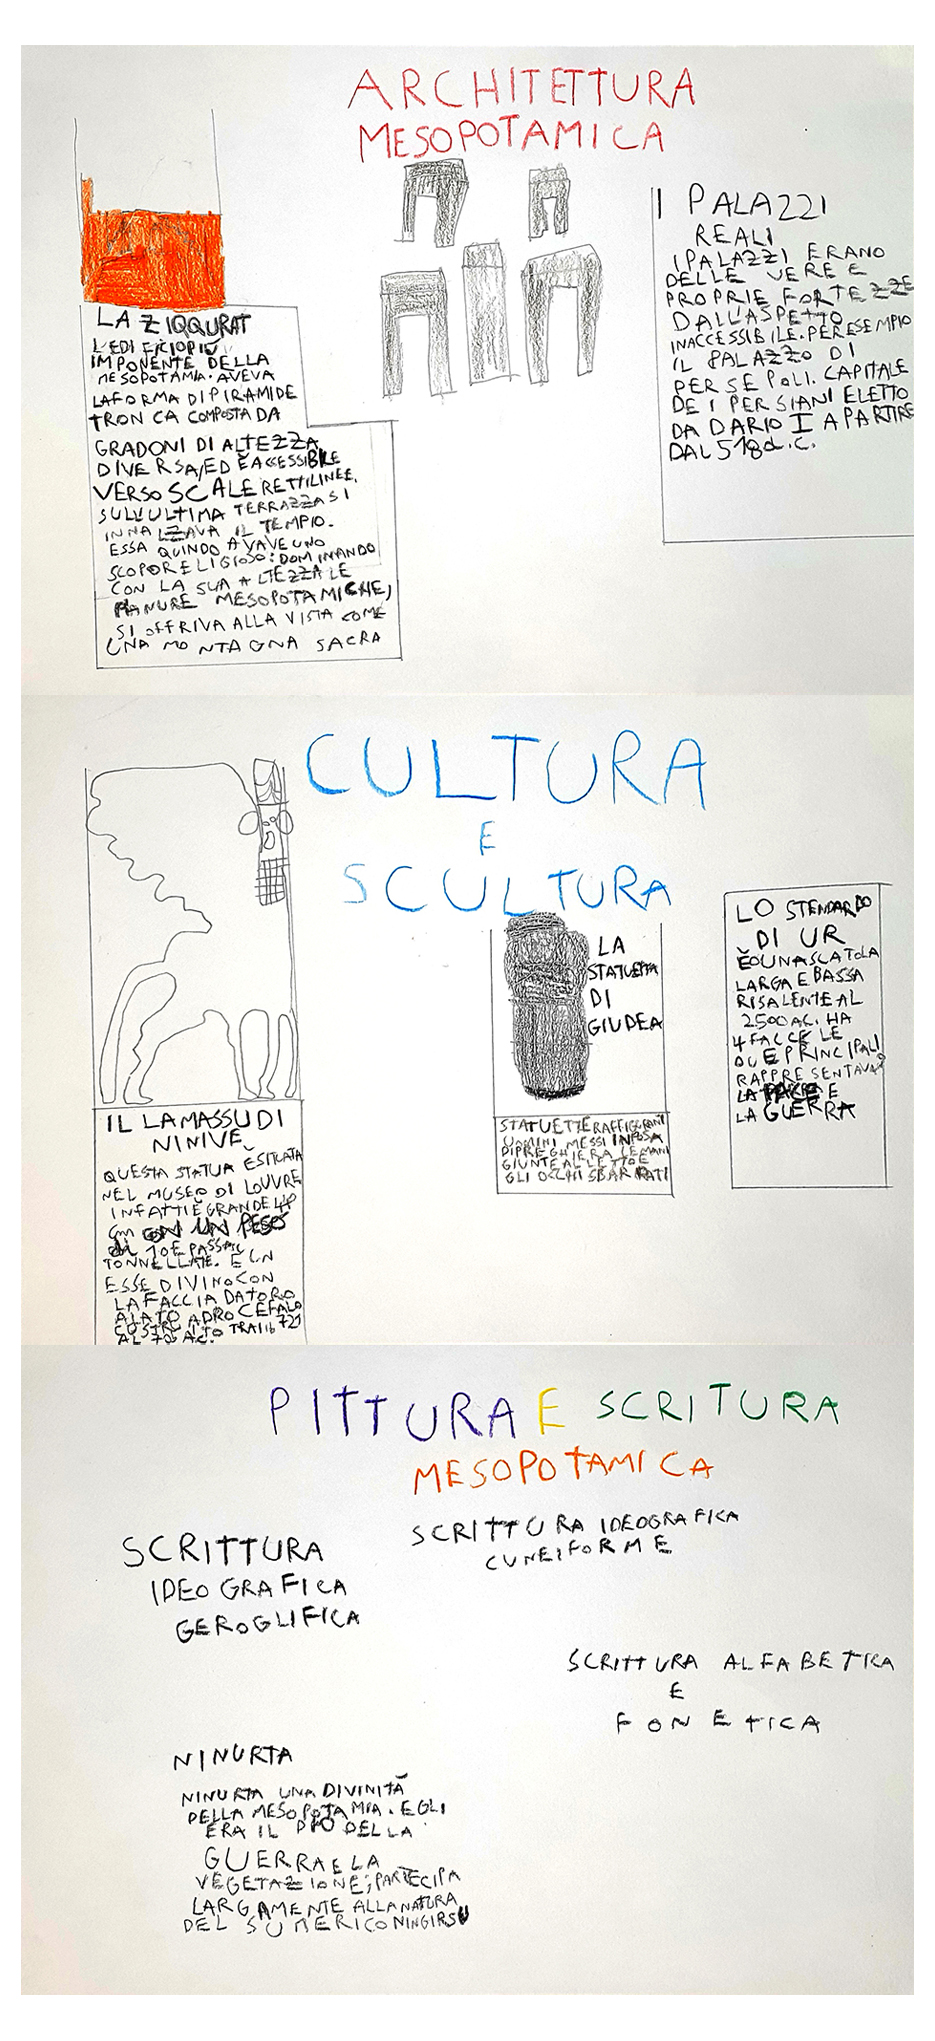 ARCHITETTURA
MESOPOTAMICA
LA ZIQQURAT
L'EDIFICIOPIÙ
IMPONENTE DELLA
MESOPOTAMIA. AVEVA
LAFORMA DIPIRAMIDE
TRONCA COMPOSTA DA
GRADONI DI ALTEZZA
DIVERSA,ED ÈACCESSIBILE
VERSO SCALE RETTILINEE.
SULL'ULTIMA TERRAZZA SI
INNALZAVA IL TEMPIO.
ESSA QUINDO AVAVE UNO
SCOPORELIGIOSO: DOMINANDO
CON LA SUA ALTEZZA LE
PIANURE MESOPOTAMICHE,
SI OFFRIVA ALLA VISTA COME
UNA MONTAGNA SACRA
I PALAZZI
REALI
I PALAZZI ERANO
DELLE VERE E
PROPRIE FORTEZZE
DALL'ASPETTO
INACCESSIBILE. PER ESEMPIO
IL PALAZZO DI
PERSEPOLI. CAPITALE
DEI PERSIANI ELETTO
DA DARIO I A PARTIRE
DAL 518 d.C.
CULTURA
E
SCULTURA
IL LAMASSU DI
NINIVE
QUESTA STATUA ÈSITUATA
NEL MUSEO DI LOUVRE
INFATTI È GRANDE 4,40
cm CON UN PESO
di 10 E PASSA
TONNELLATE. E UN
ESSE DIVINO CON
LA FACCIA DATORO
ALATO ADROCEFALO
COSTRUITO TRA IL 721
AL 705 AC.
LA
STATUETTA
DI
GIUDEA
STATUETTE RAFFIGURANTI
UOMINI MESSI IN POSA
DI PREGHIERA LE MANI
GIUNTE AL LETTO E
GLI OCCHI SBARRATI
LO STENDARDO
DI UR
ÈDUNASCATOLA
LARGA E BASSA
RISALENTE AL
2500 AC. HA
4 FACCE LE
DUE PRINCIPALI
RAPPRESENTAVANO
LA PACE E
LA GUERRA
PITTURA E SCRITURA
MESOPOTAMICA
SCRITTURA
IDEOGRAFICA
GEROGLIFICA
SCRITTURA IDEOGRAFICA
CUNEIFORME
SCRITTURA ALFABETICA
E
FONETICA
NINURTA
NINURTA UNA DIVINITÀ
DELLA MESOPOTAMIA. EGLI
ERA IL DIO DELLA
GUERRA E LA
VEGETAZIONE; PARTECIPA
LARGAMENTE ALLA NATURA
DEL SUMERICO NINGIRSU